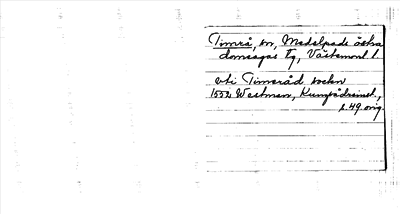 Timrå, sn, Medelpads östra
domsagas tg, Västernorrl. l
vti Timeråd sockn
1552 Westman, Kungsådrainst.,
s. 49. orig.